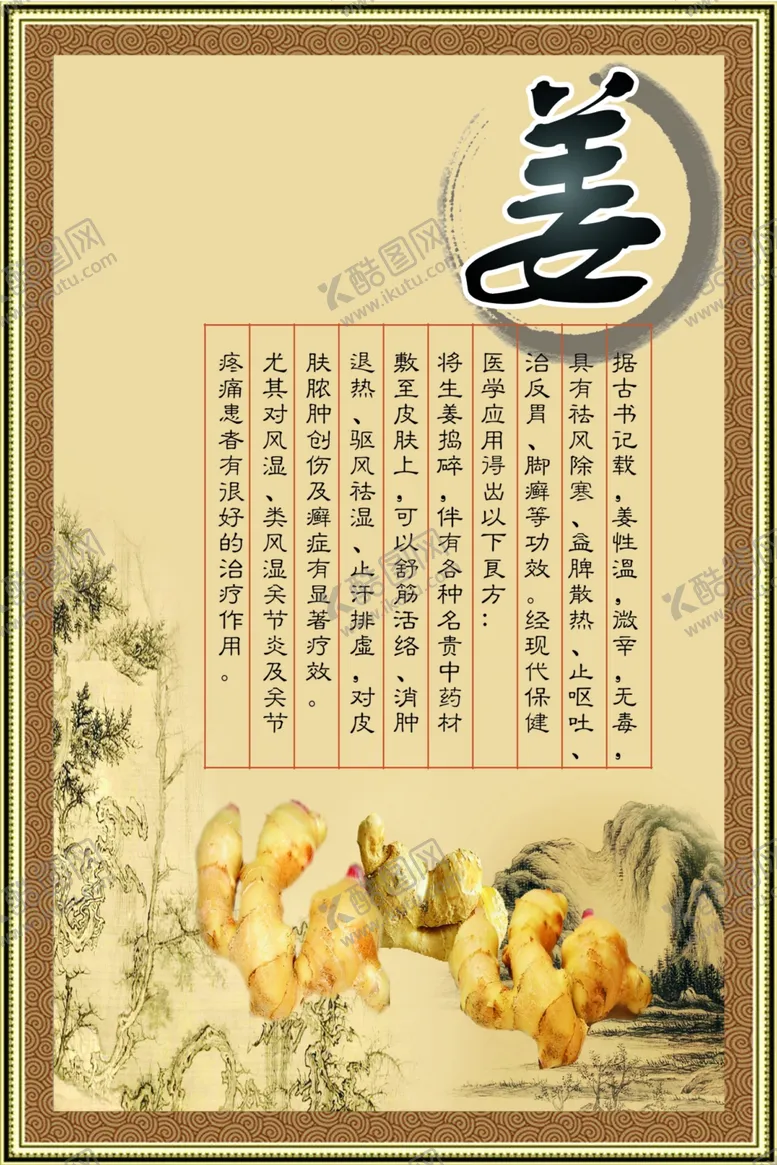 姜
据古书记载，姜性温，微辛，无毒，
具有祛风除寒、益脾散热、止呕吐、
治反胃、脚癣等功效。经现代保健
医学应用得出以下良方：
将生姜捣碎，伴有各种名贵中药材
敷至皮肤上，可以舒筋活络、消肿
退热、驱风祛湿、止汗排虚，对皮
肤脓肿创伤及癣症有显著疗效。
尤其对风湿、类风湿关节炎及关节
疼痛患者有很好的治疗作用。
酷图网
www.ikutu.com